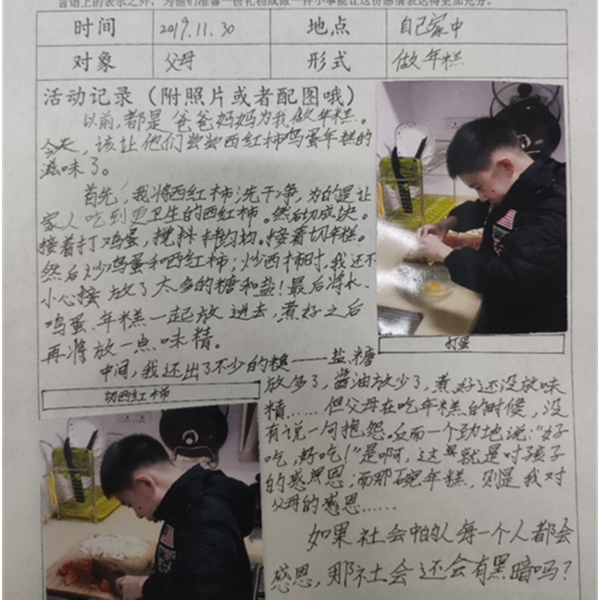 言语上的表示之外，为他们准备一份礼物或做一件小事能让这份感情表达得更加充分。
时间 2019.11.30 地点 自己家中
对象 父母 形式 做年糕
活动记录（附照片或者配图哦）
以前，都是爸爸妈妈为我做年糕。
今天，该让他们尝尝西红柿鸡蛋年糕的
滋味了。
首先，我将西红柿洗干净，为的是让
家人吃到更卫生的西红柿。然后切成块。
接着打鸡蛋，搅拌均匀。接着切年糕。
然后炒鸡蛋和西红柿；炒西柿时，我还不
小心放了太多的糖和盐！最后将水、
鸡蛋、年糕一起放进去，煮好之后
再将放一点味精。
打蛋
中间，我还出了不少的糗——盐糖
切西红柿
放多了，酱油放少了，煮好还没放味
精……但父母在吃年糕的时候，没
有说一句抱怨。反而一个劲地说：“好
吃，好吃！”是啊，这就是对孩子
的感恩；而那碗年糕，则是我对
父母的感恩……
如果社会中的人每一个人都会
感恩，那社会还会有黑暗吗？